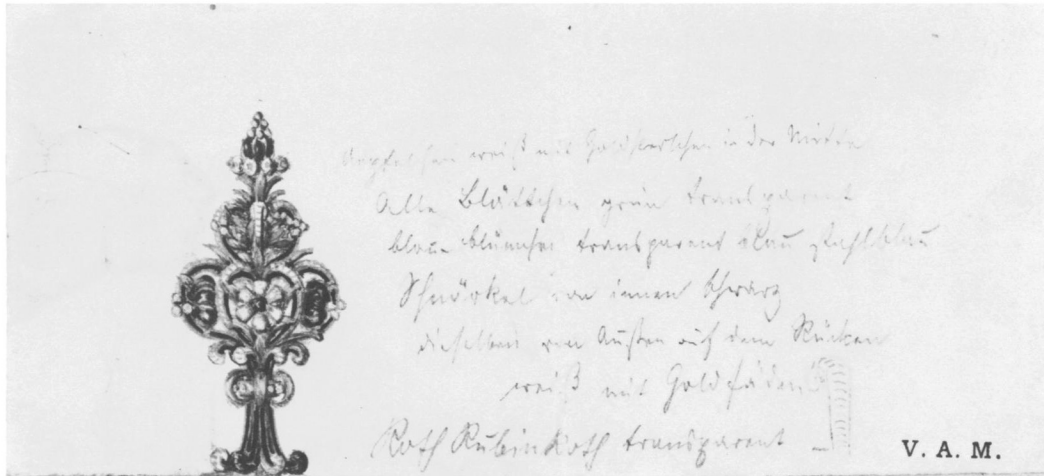 weiß mit in der Mitte
Alle Blättchen grün transparent
transparent blau stahlblau
Schnörkel von innen schwarz
dieselben von Außen auf dem Rücken
weiß mit Goldfäden
Roth Rubinroth transparent
V. A. M.